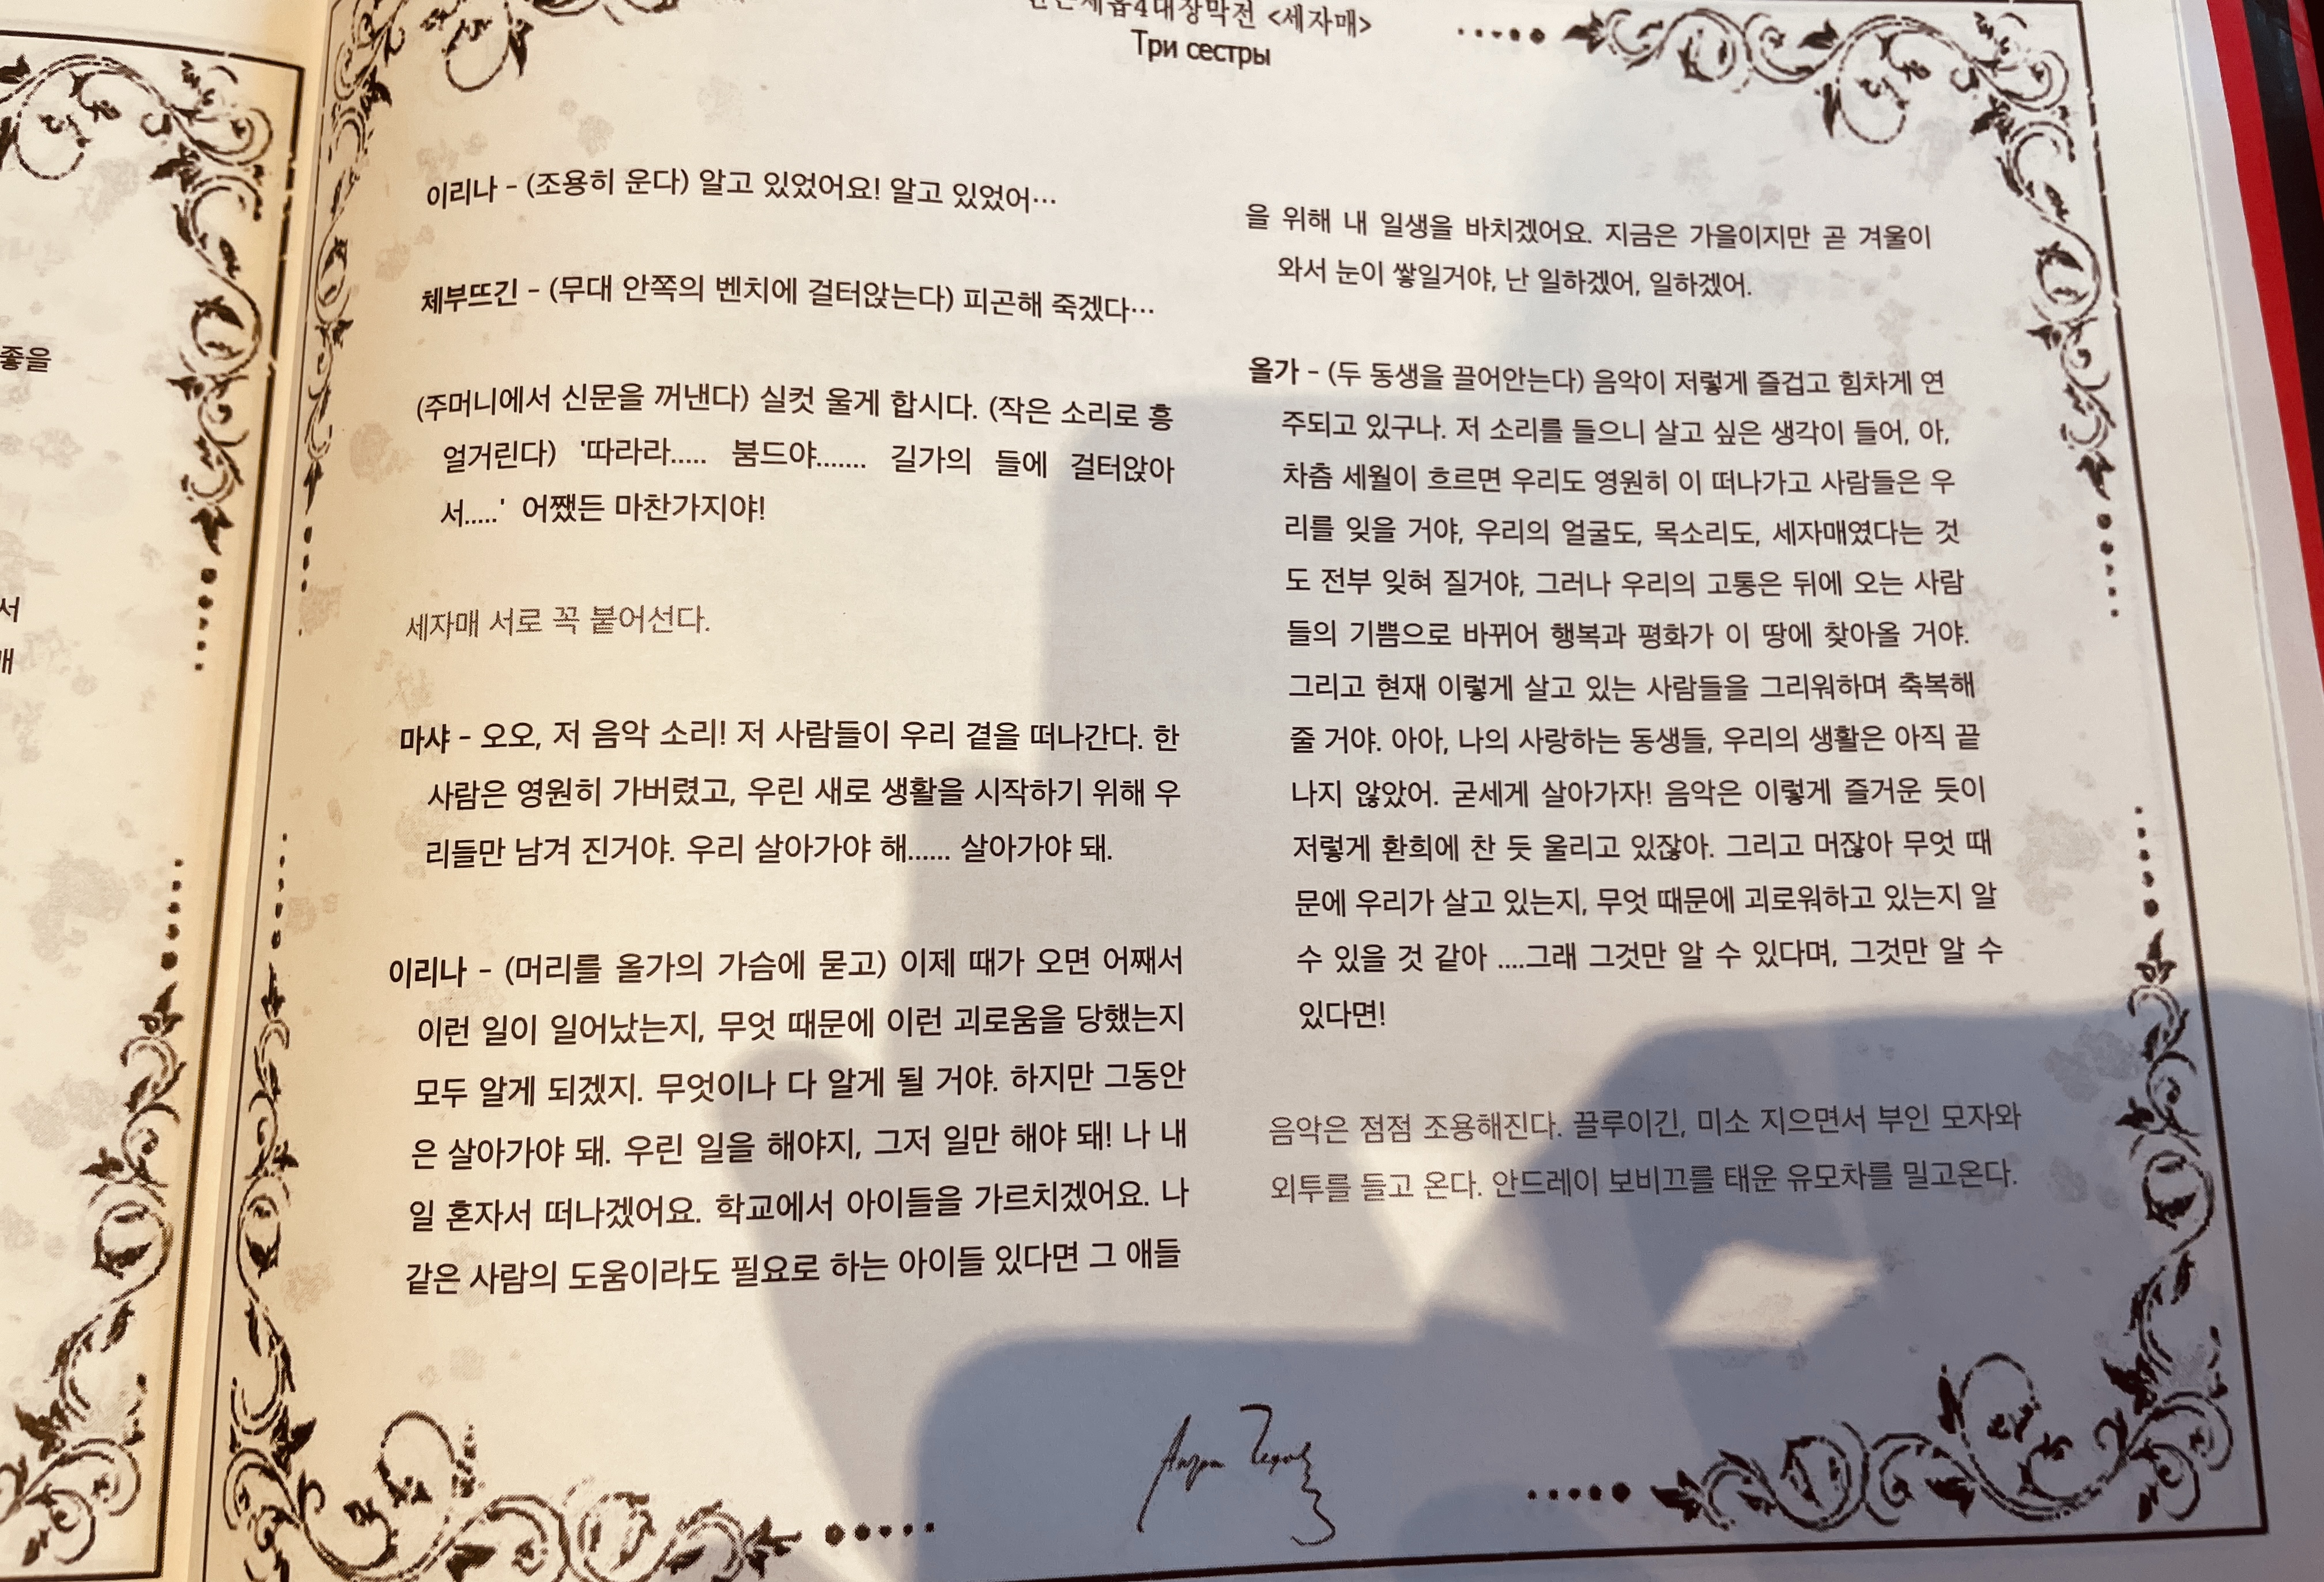 4대장막전 <세자매>
Три сестры
좋을
서
이리나 - (조용히 운다) 알고 있었어요! 알고 있었어…
체부뜨긴 - (무대 안쪽의 벤치에 걸터앉는다) 피곤해 죽겠다…
(주머니에서 신문을 꺼낸다) 실컷 울게 합시다. (작은 소리로 흥
얼거린다) '따라라..... 붐드야....... 길가의 들에 걸터앉아
서.....' 어쨌든 마찬가지야!
세자매 서로 꼭 붙어선다.
마샤 - 오오, 저 음악 소리! 저 사람들이 우리 곁을 떠나간다. 한
사람은 영원히 가버렸고, 우린 새로 생활을 시작하기 위해 우
리들만 남겨 진거야. 우리 살아가야 해...... 살아가야 돼.
이리나 - (머리를 올가의 가슴에 묻고) 이제 때가 오면 어째서
이런 일이 일어났는지, 무엇 때문에 이런 괴로움을 당했는지
모두 알게 되겠지. 무엇이나 다 알게 될 거야. 하지만 그동안
은 살아가야 돼. 우린 일을 해야지, 그저 일만 해야 돼! 나 내
일 혼자서 떠나겠어요. 학교에서 아이들을 가르치겠어요. 나
같은 사람의 도움이라도 필요로 하는 아이들 있다면 그 애들
을 위해 내 일생을 바치겠어요. 지금은 가을이지만 곧 겨울이
와서 눈이 쌓일거야, 난 일하겠어, 일하겠어.
올가 - (두 동생을 끌어안는다) 음악이 저렇게 즐겁고 힘차게 연
주되고 있구나. 저 소리를 들으니 살고 싶은 생각이 들어, 아,
차츰 세월이 흐르면 우리도 영원히 이 떠나가고 사람들은 우
리를 잊을 거야, 우리의 얼굴도, 목소리도, 세자매였다는 것
도 전부 잊혀 질거야, 그러나 우리의 고통은 뒤에 오는 사람
들의 기쁨으로 바뀌어 행복과 평화가 이 땅에 찾아올 거야.
그리고 현재 이렇게 살고 있는 사람들을 그리워하며 축복해
줄 거야. 아아, 나의 사랑하는 동생들, 우리의 생활은 아직 끝
나지 않았어. 굳세게 살아가자! 음악은 이렇게 즐거운 듯이
저렇게 환희에 찬 듯 울리고 있잖아. 그리고 머잖아 무엇 때
문에 우리가 살고 있는지, 무엇 때문에 괴로워하고 있는지 알
수 있을 것 같아 ....그래 그것만 알 수 있다며, 그것만 알 수
있다면!
음악은 점점 조용해진다. 끌루이긴, 미소 지으면서 부인 모자와
외투를 들고 온다. 안드레이 보비끄를 태운 유모차를 밀고온다.